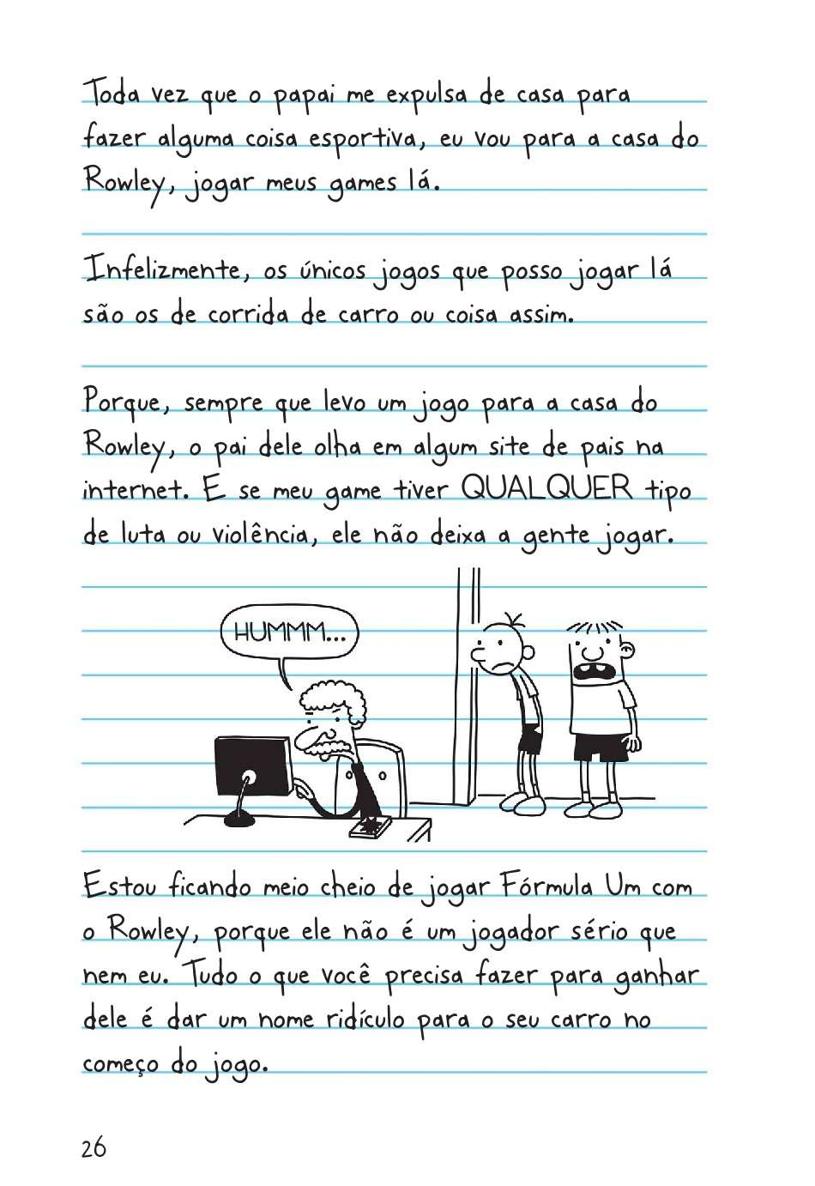 Toda vez que o papai me expulsa de casa para
fazer alguma coisa esportiva, eu vou para a casa do
Rowley, jogar meus games lá.
Infelizmente, os únicos jogos que posso jogar lá
são os de corrida de carro ou coisa assim.
Porque, sempre que levo um jogo para a casa do
Rowley, o pai dele olha em algum site de pais na
internet. E se meu game tiver QUALQUER tipo
de luta ou violência, ele não deixa a gente jogar.
HUMMM...
Estou ficando meio cheio de jogar Fórmula Um com
o Rowley, porque ele não é um jogador sério que
nem eu. Tudo o que você precisa fazer para ganhar
dele é dar um nome ridículo para o seu carro no
começo do jogo.
26